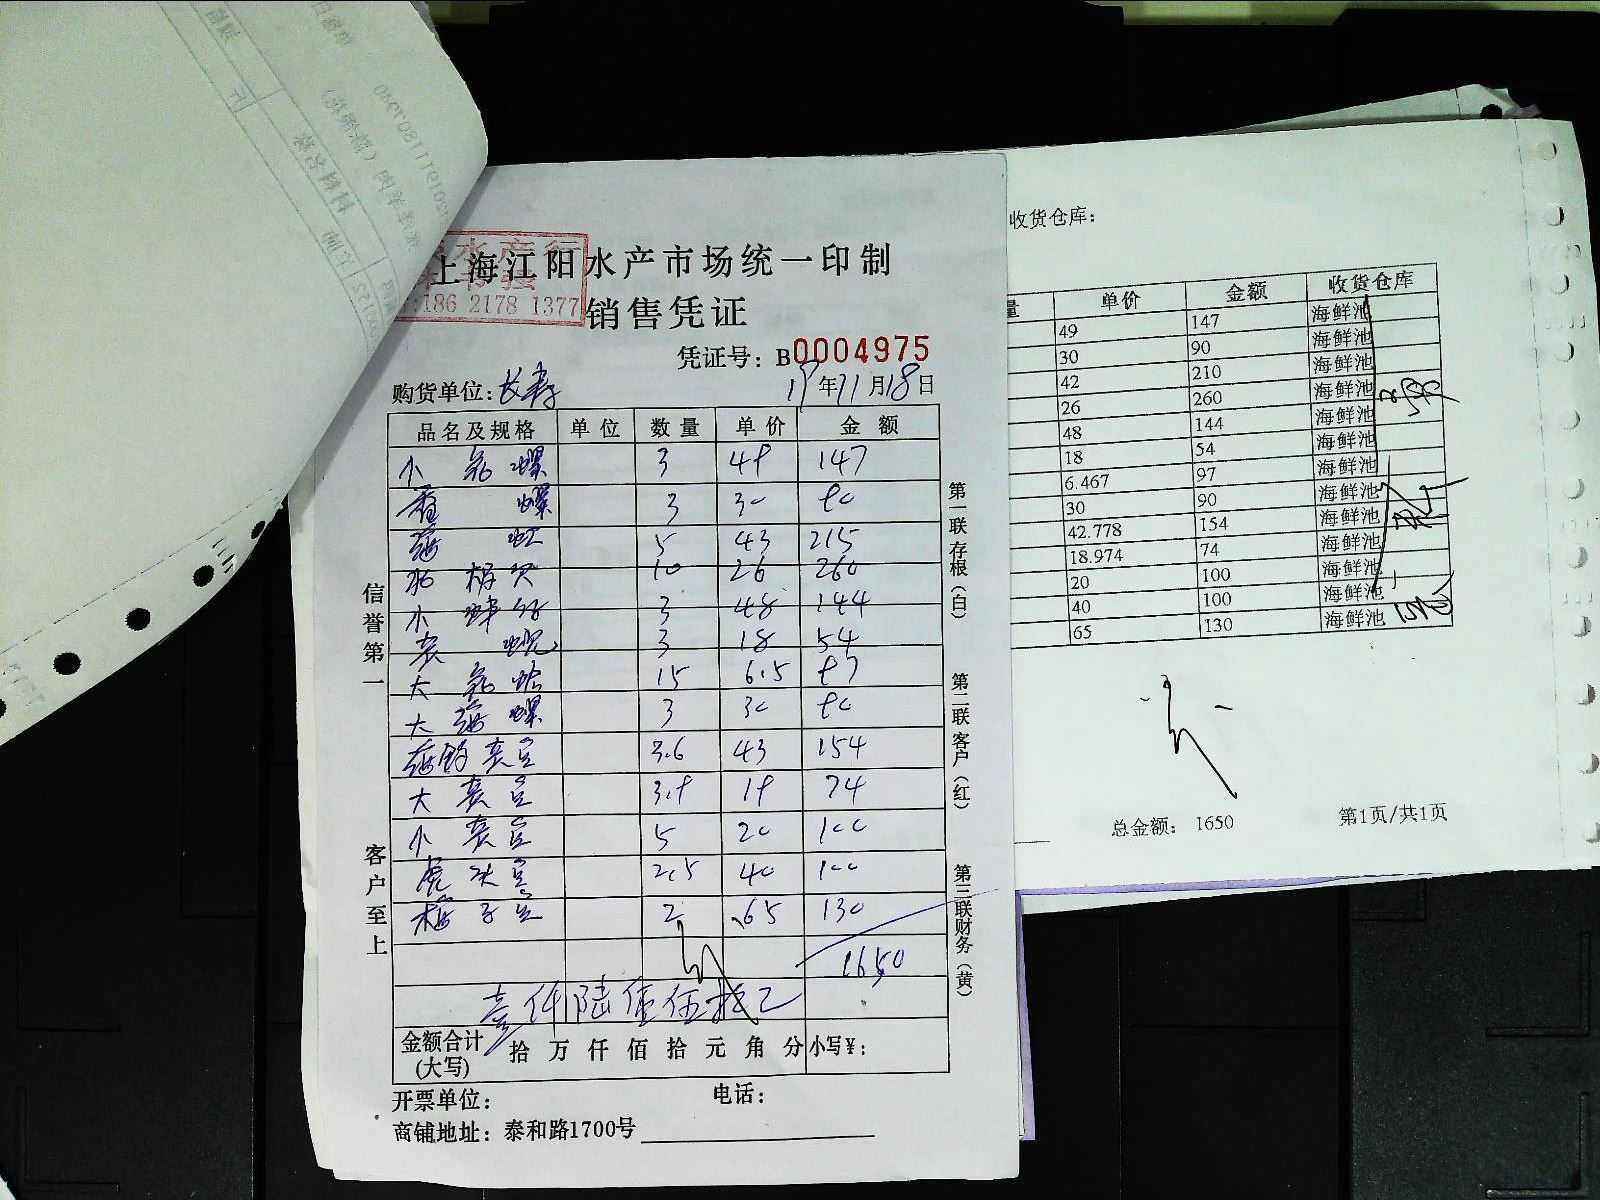 水产行
186 2178 1377
上海江阳水产市场统一印制
销售凭证
凭证号：B0004975
购货单位：长寿 19年11月18日
品名及规格 单位 数量 单价 金额
小 花 螺 3 49 147
香 螺 3 30 90
海 虹 5 43 215
10 26 260
小 3 48 144
3 18 54
大 花 蛤 15 6.5 97
大 海 螺 3 30 90
3.6 43 154
大 3.9 19 74
小 5 20 100
2.5 40 100
2 65 130
1650
壹仟陆佰伍拾元
金额合计(大写) 拾 万 仟 佰 拾 元 角 分 小写¥：
开票单位： 电话：
商铺地址：泰和路1700号
信誉第一
客户至上
第一联存根（白）
第二联客户（红）
第三联财务（黄）
收货仓库：
量 单价 金额 收货仓库
49 147 海鲜池
30 90 海鲜池
42 210 海鲜池
26 260 海鲜池
48 144 海鲜池
18 54 海鲜池
6.467 97 海鲜池
30 90 海鲜池
42.778 154 海鲜池
18.974 74 海鲜池
20 100 海鲜池
40 100 海鲜池
65 130 海鲜池
总金额： 1650
第1页/共1页